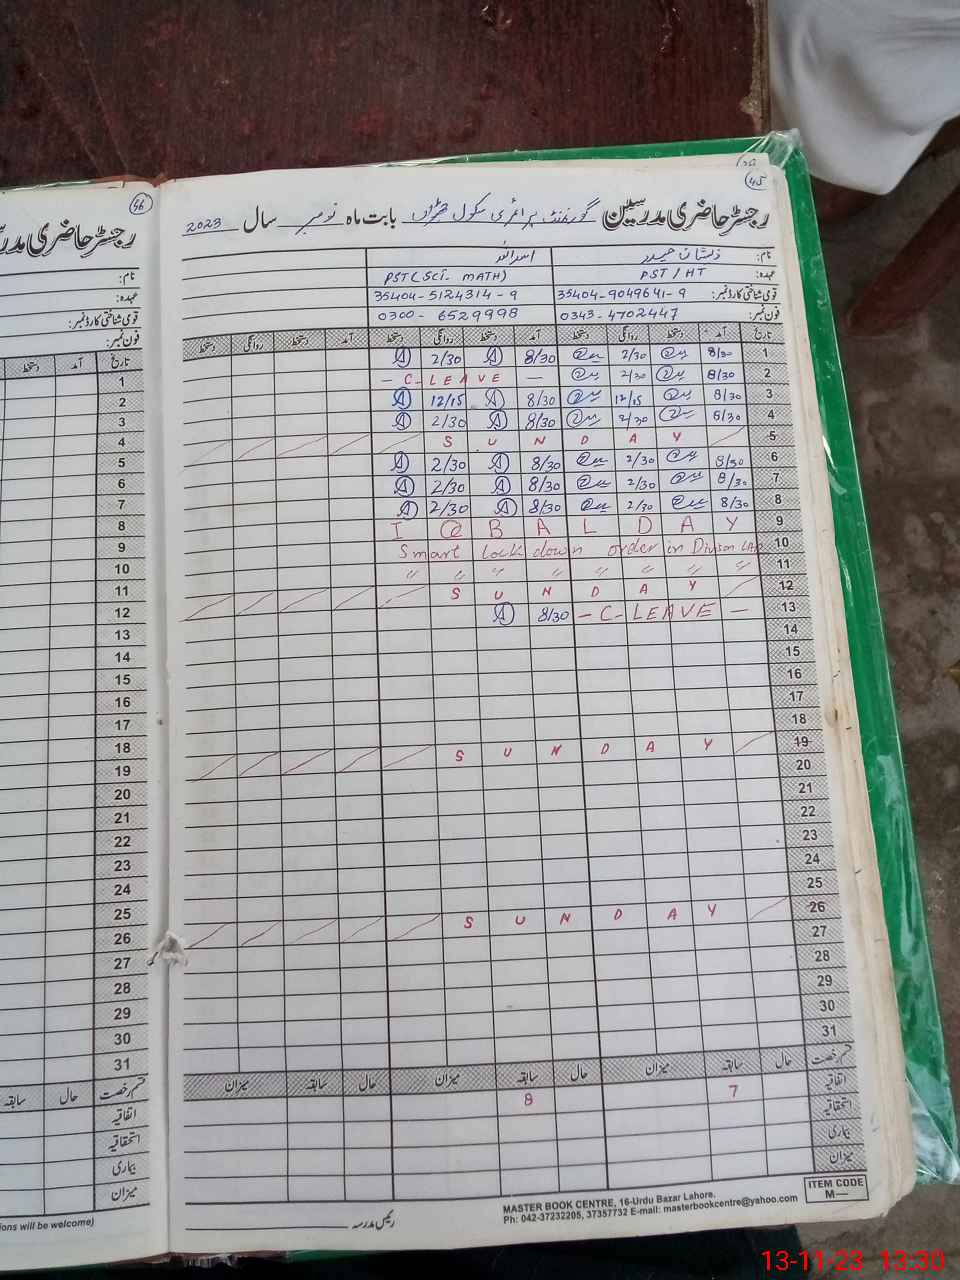 45
رجسٹر حاضری مدرسین گورنمنٹ پرائمری سکول بابت ماہ نومبر سال 2023
نام: ذیشان حیدر اسد اللہ
عہدہ: PST / HT PST (SCI- MATH)
قومی شناختی کارڈ نمبر: 35404-9049641-9 35404-5124314-9
فون نمبر: 0343-4702447 0300-6529998
تاریخ آمد دستخط روانگی دستخط آمد دستخط روانگی دستخط آمد دستخط روانگی دستخط
1 8/30 2/30 8/30 2/30
2 8/30 2/30 - C-LEAVE -
3 8/30 12/15 8/30 12/15
4 8/30 2/30 8/30 2/30
5 SUNDAY
6 8/30 2/30 8/30 2/30
7 8/30 2/30 8/30 2/30
8 8/30 2/30 8/30 2/30
9 IQBAL DAY
10 Smart lock down order in Divison
11 " " " " " " "
12 SUNDAY
13 - C-LEAVE - 8/30
14
15
16
17
18
19 SUNDAY
20
21
22
23
24
25
26 SUNDAY
27
28
29
30
31
قسم رخصت حال سابقہ میزان حال سابقہ میزان حال سابقہ میزان
اتفاقیہ 7 8
استحقاقیہ
بیماری
میزان
رئیس مدرسہ
MASTER BOOK CENTRE, 16-Urdu Bazar Lahore.
Ph: 042-37232205, 37357732 E-mail: masterbookcentre@yahoo.com
ITEM CODE
M—
46
رجسٹر حاضری
نام:
عہدہ:
قومی شناختی کارڈ نمبر:
فون نمبر:
تاریخ آمد دستخط
1
2
3
4
5
6
7
8
9
10
11
12
13
14
15
16
17
18
19
20
21
22
23
24
25
26
27
28
29
30
31
قسم رخصت حال سابقہ
اتفاقیہ
استحقاقیہ
بیماری
میزان
ions will be welcome)
13-11-23 13:30